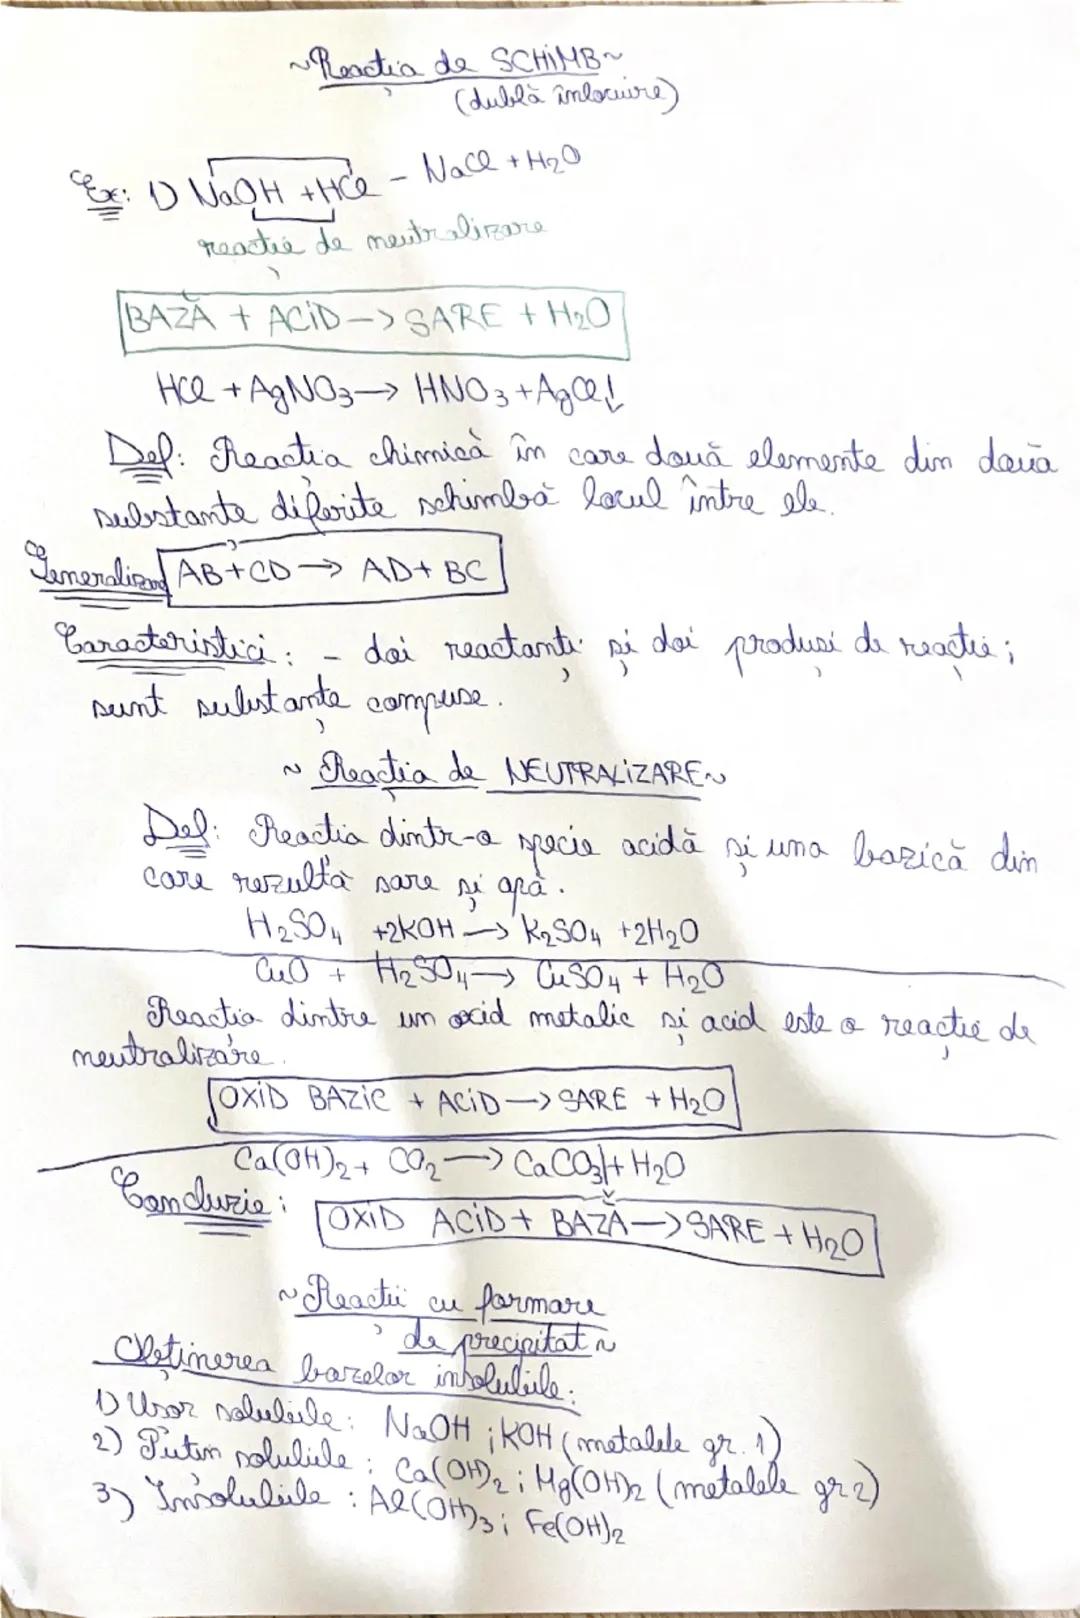 ~Reacția de SCHIMB~
(dublă înlocuire)
Ex: 1) NaOH + HCl - NaCl + H₂O
reacție de neutralizare
BAZĂ + ACID -> SARE + H₂O
HCl + AgNO₃ → HNO₃ + AgCl↓
Def: Reacția chimică în care două elemente din două
substanțe diferite schimbă locul între ele.
Generalizând AB + CD → AD + BC
Caracteristici: - doi reactanți și doi produși de reacție;
sunt substanțe compuse.
~ Reacția de NEUTRALIZARE~
Def: Reacția dintr-o specie acidă și una bazică din
care rezultă sare și apă.
H₂SO₄ +2KOH → K₂SO₄ +2H₂O
CuO + H₂SO₄ → CuSO₄ + H₂O
Reacția dintre un oxid metalic și acid este o reacție de
neutralizare.
OXID BAZIC + ACID -> SARE + H₂O
Ca(OH)₂ + CO₂ → CaCO₃↓ + H₂O
Concluzie: OXID ACID + BAZĂ -> SARE + H₂O
~Reacții cu formare
de precipitat~
Obținerea bazelor insolubile:
1) Ușor solubile: NaOH ; KOH (metalele gr. 1)
2) Puțin solubile : Ca(OH)₂ ; Mg(OH)₂ (metalele gr 2)
3) Insolubile : Al(OH)₃ ; Fe(OH)₂